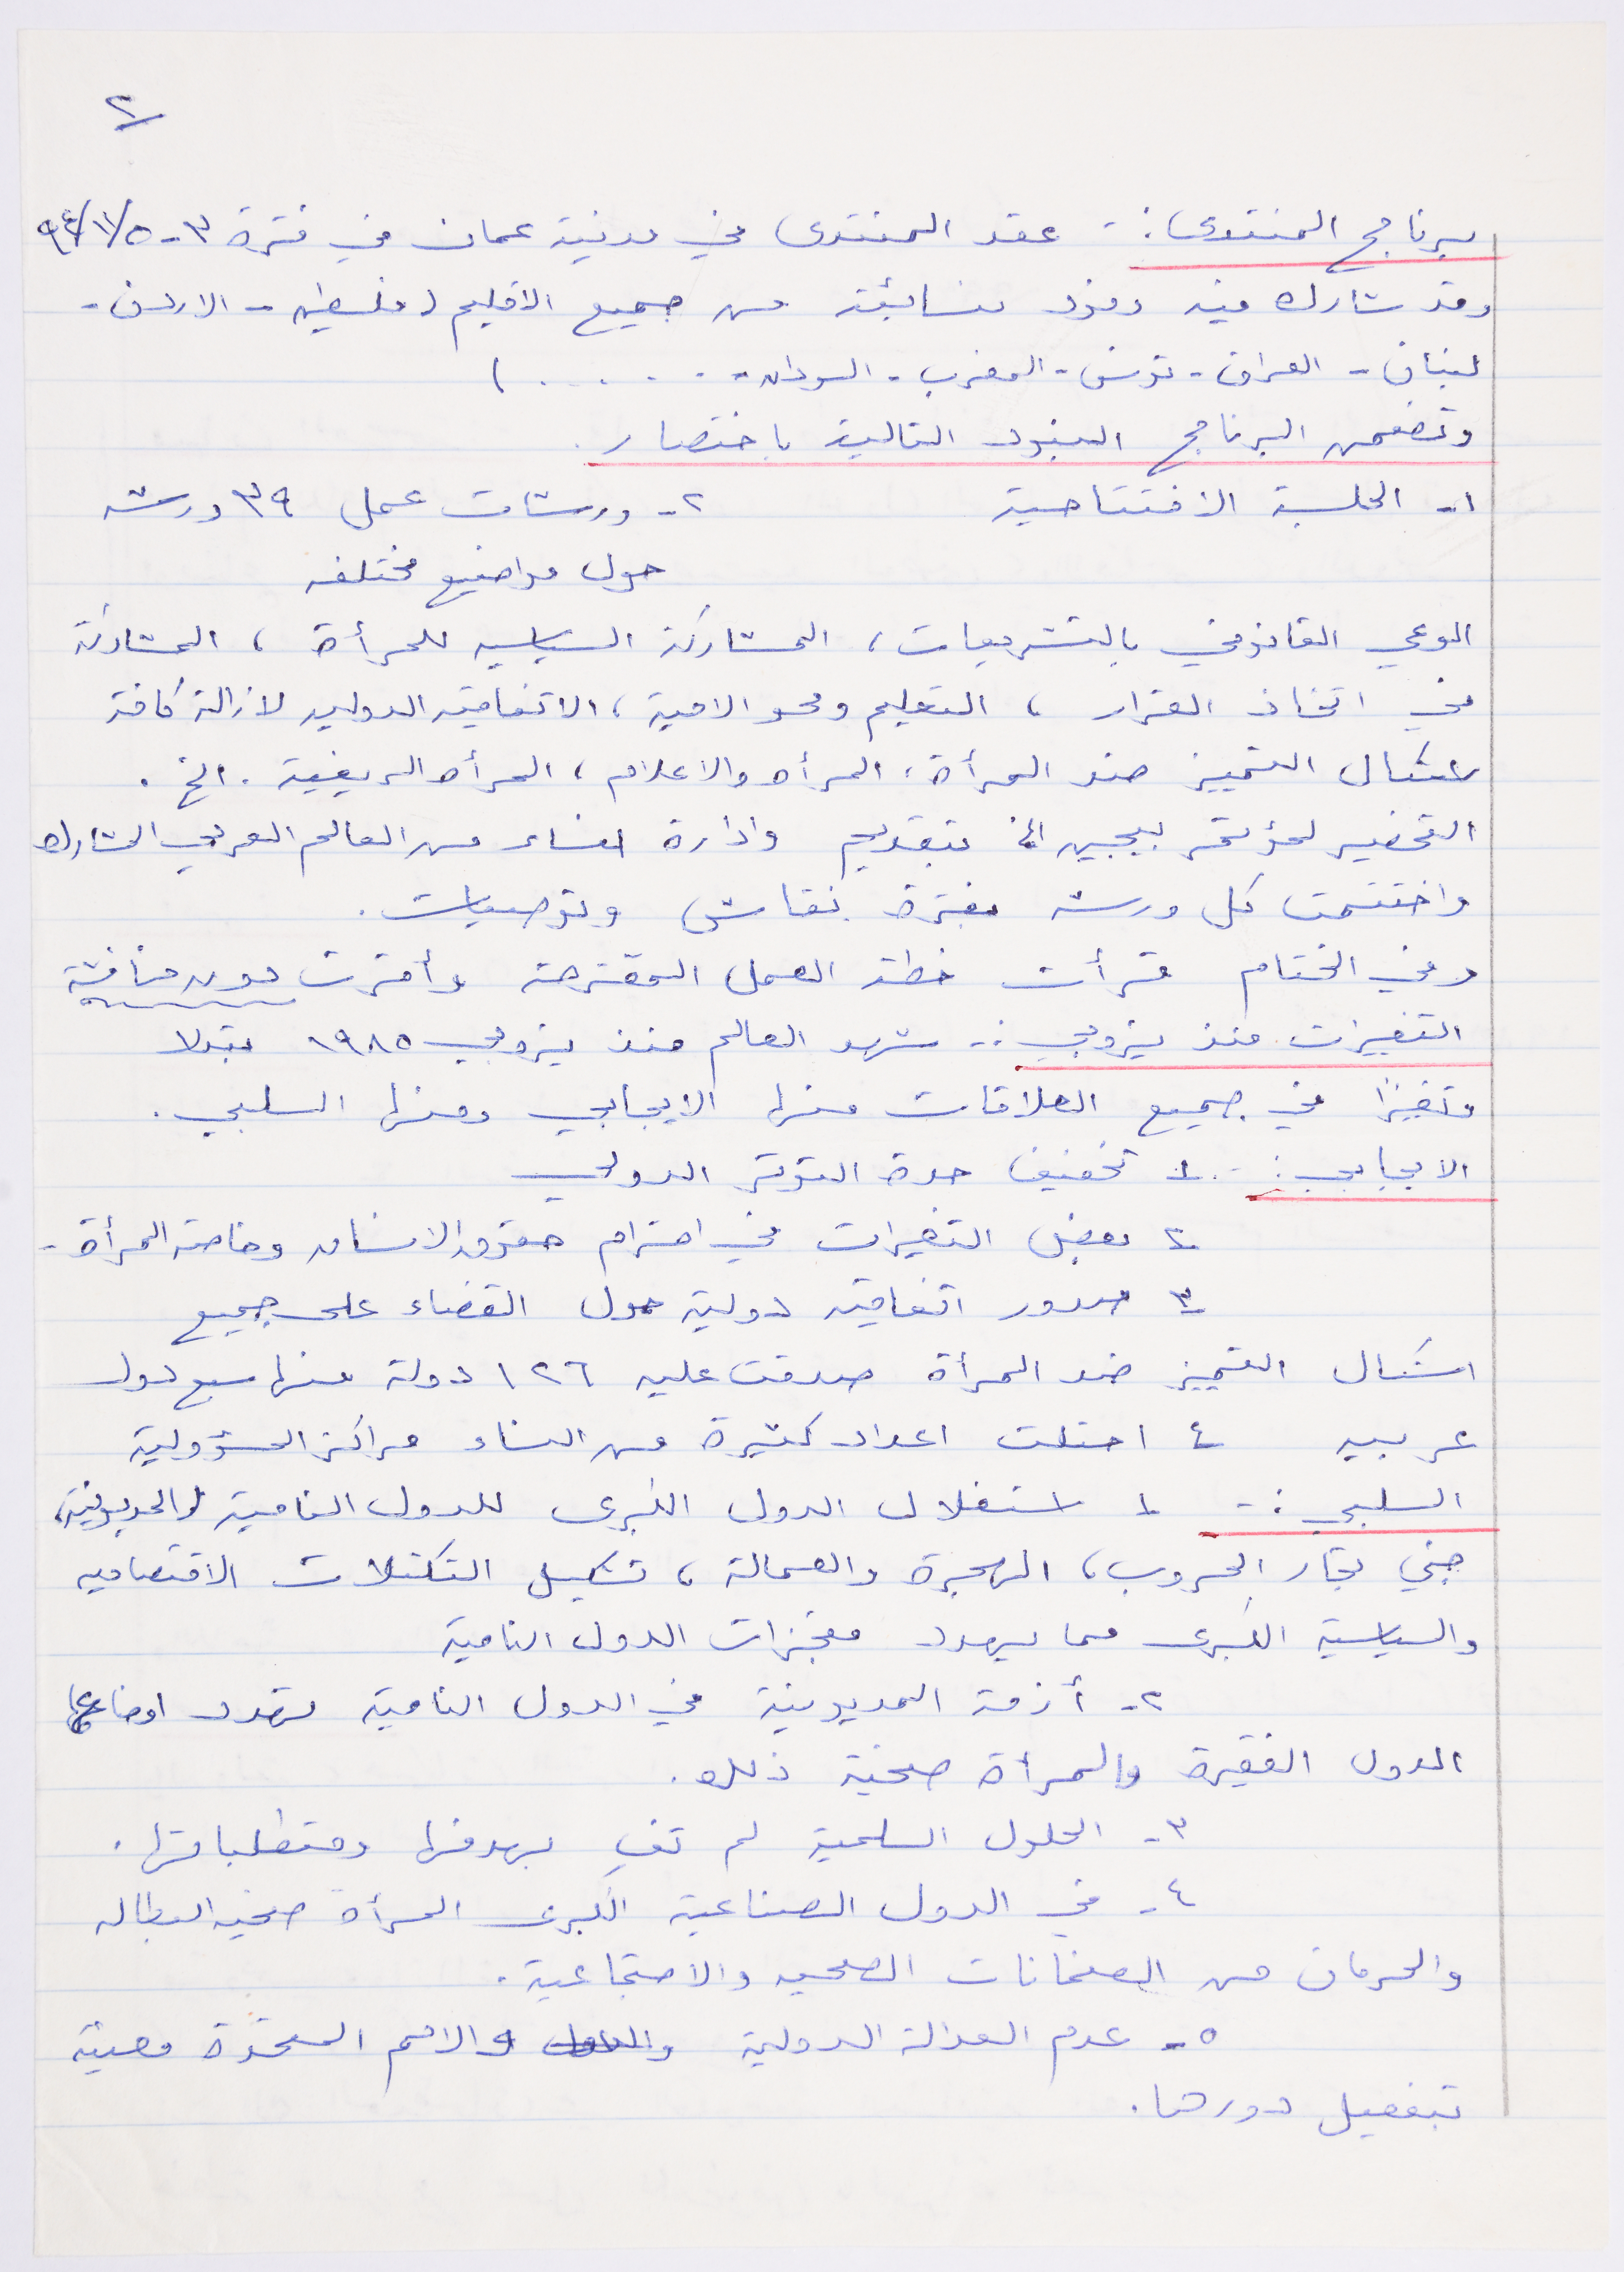 ٢
برنامج المنتدى :- عقد المنتدى في مدنية عمان في فترة ٣-٩٤/١١/٥
وقد شارك فيه وفود نسائية من جميع الاقليم ( فلسطين - الاردن -
لبنان - العراق - تونس - المغرب - السودان - . . . . . )
وتضمن البرنامج البنود التالية باختصار .
١- الجلسة الافتتاحية ٢- ورشات عمل ٣٩ ورشه
حول مواضيع مختلفه
الوعي القانوني بالتشريعات ، المشاركة السياسيه للمرأة ، المشاركة
في اتخاذ القرار ، التعليم ومحو الامية ، الاتفاقيه الدوليه لازالة كافة
اشكال التمييز ضد المرأة ، المرأه والاعلام ، المرأه الريفية . الخ .
التحضير لمؤتمر بيجين الخ بتقديم وادارة نساء من العالم العربي المشارك
واختتمت كل ورشه بفترة نقاش وتوصيات .
وفي الختام قرأت خطة العمل المقترحة وأقرت دون مناقشة
التغييرات منذ نيروبي :- شهد العالم منذ نيروبي ١٩٨٥ تبدلا
وتغيرًا في جميع العلاقات منها الايجابي ومنها السلبي .
الايجابي :- ١ تخفيف حدة التوتر الدولي
٢ بعض التغيرات في احترام حقوق الانسان وخاصة المرأة -
٣ صدور اتفاقيه دولية حول القضاء على جميع
اشكال التمييز ضد المرأة صدقت عليه ١٢٦ دولة منها سبع دول
عربيه ٤ احتلت اعداد كثيرة من النساء مراكز المسؤولية
السلبي :- ١ استغلال الدول الكبرى للدول النامية والمديونية ،
جني تجار الحروب ، الهجرة والعمالة ، تشكيل التكتلات الاقتصاديه
والسياسية الكبرى مما يهدد منجزات الدول النامية
٢- أزمة المديونية في الدول النامية تهدد اوضاع
الدول الفقيرة والمرأة ضحية ذلك .
٣- الحلول السلمية لم تف بهدفها ومتطلباتها .
٤- في الدول الصناعية الكبرى المرأة ضحيه البطاله
والحرمان من الضمانات الصحيه والاجتماعية .
٥- عدم العدالة الدولية والامم المتحدة معنية
بتفعيل دورها .